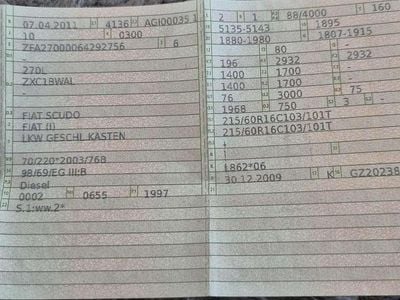 07.04.2011 4136 AGI00035 1
10 0300
ZFA27000064292756 6
-
270L
ZXC1BWAL
-
FIAT SCUDO
FIAT (I)
LKW GESCHL.KASTEN
-
70/220*2003/76B
98/69/EG III;B
Diesel
0002 0655 1997
S.1:ww.2*
2 1 88/4000 160
5135-5143 1895
1880-1980 1807-1915
80 -
196 2932 2932
1400 1700 -
1400 1700 -
76 3000 75
1968 750 3 -
215/60R16C103/101T
215/60R16C103/101T
-
L862*06
30.12.2009 K GZ20238